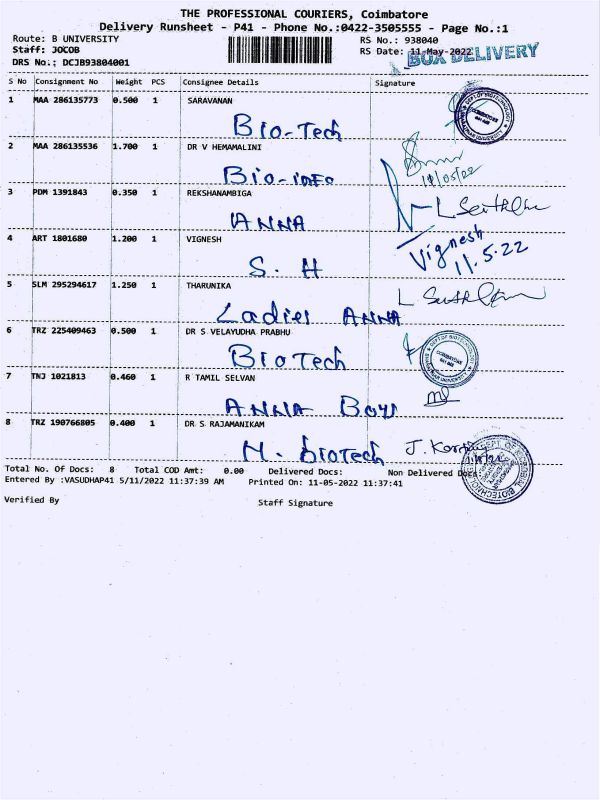 THE PROFESSIONAL COURIERS, Coimbatore
Delivery Runsheet - P41 - Phone No.:0422-3505555 - Page No.:1
Route: B UNIVERSITY RS No.: 938040
Staff: JOCOB RS Date: 11-May-2022
BOX DELIVERY
DRS No.; DCJB93804001
S No Consignment No Weight PCS Consignee Details Signature
1 MAA 286135773 0.500 1 SARAVANAN
Bio-Tech
2 MAA 286135536 1.700 1 DR V HEMAMALINI
Bio-info 11/05/22
3 PDM 1391843 0.350 1 REKSHANAMBIGA
ANNA
4 ART 1801680 1.200 1 VIGNESH
S. H Vignesh
11.5.22
5 SLM 295294617 1.250 1 THARUNIKA
Ladies ANNA
6 TRZ 225409463 0.500 1 DR S VELAYUDHA PRABHU
BioTech
7 TNJ 1021813 0.460 1 R TAMIL SELVAN
ANNA Boys
8 TRZ 190766805 0.400 1 DR S RAJAMANIKAM
M. biotech
Total No. Of Docs: 8 Total COD Amt: 0.00 Delivered Docs: Non Delivered Docs:
Entered By :VASUDHAP41 5/11/2022 11:37:39 AM Printed On: 11-05-2022 11:37:41
Verified By Staff Signature